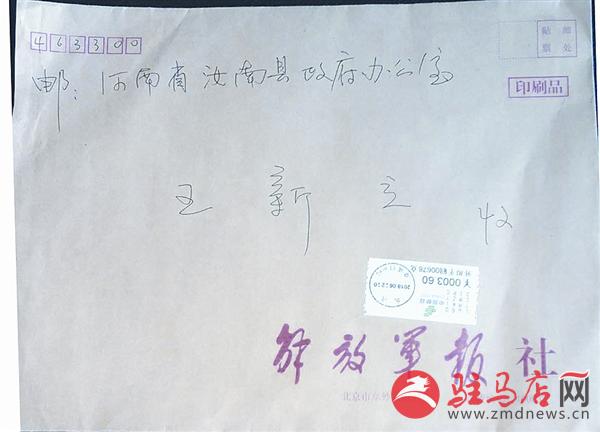 463300
贴 邮
票 处
邮：河南省汝南县政府办公室
印刷品
王新立 收
¥0003.60
解放军报社
北京市阜外
驻马店网
www.zmdnews.cn